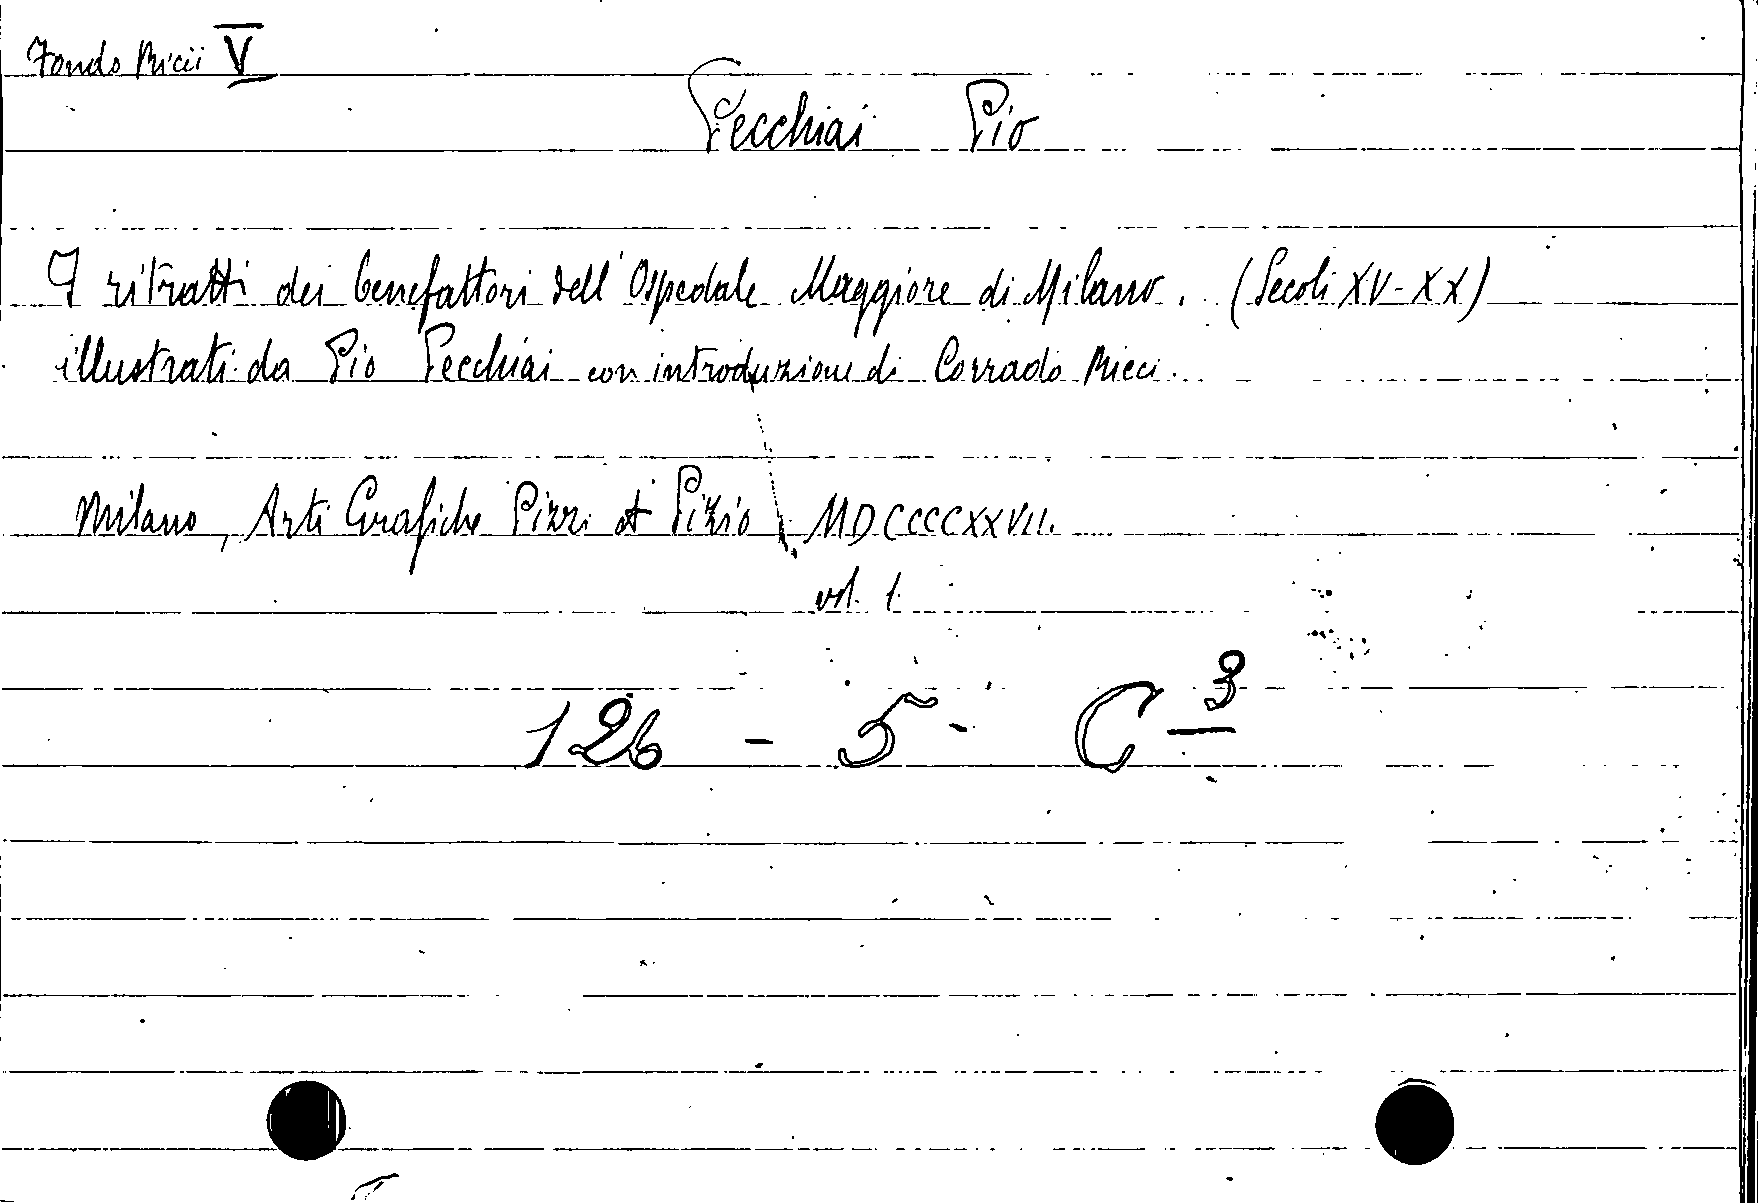 Fondo Ricci V
Pecchiai Pio
I ritratti dei benefattori dell'Ospedale Maggiore di Milano. (Secoli XV-XX)
illustrati da Pio Pecchiai con introduzione di Corrado Ricci.
Milano, Arti Grafiche Pizzi et Pizio, MDCCCCXXVII.
vol. 1.
126 - 5 - C 3